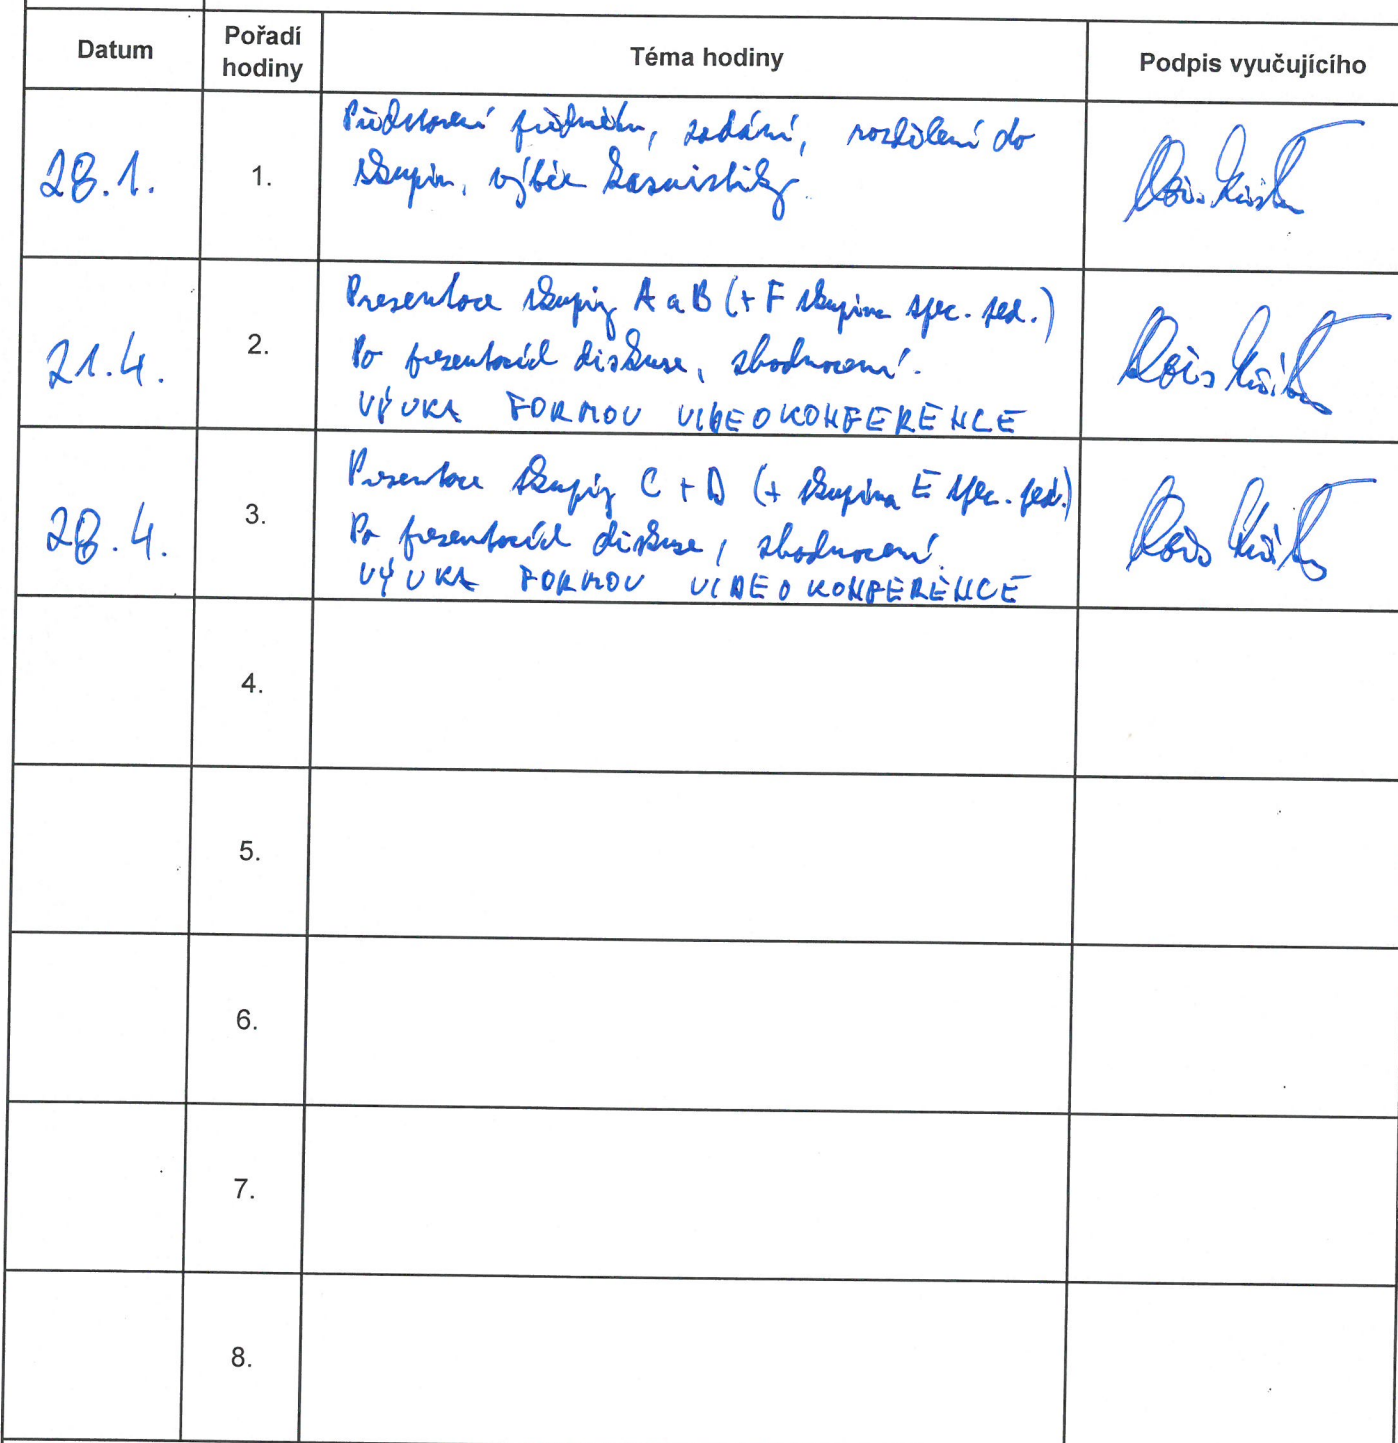 Datum
Pořadí hodiny
Téma hodiny
Podpis vyučujícího
28.1.
1.
Představení předmětu, zadání, rozdělení do
skupin, výběr kasuistiky.
21.4.
2.
Presentace skupiny A a B (+ F skupina spec. ped.)
Po presentacích diskuse, zhodnocení.
VÝUKA FORMOU VIDEOKONFERENCE
28.4.
3.
Presentace skupiny C + D (+ skupina E spec. ped.)
Po presentacích diskuse, zhodnocení.
VÝUKA FORMOU VIDEOKONFERENCE
4.
5.
6.
7.
8.